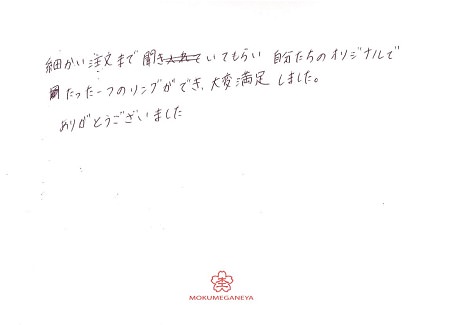 細かい注文まで聞いてもらい 自分たちのオリジナルで
たった一つのリングができ、大変満足しました。
ありがとうございました
MOKUMEGANEYA